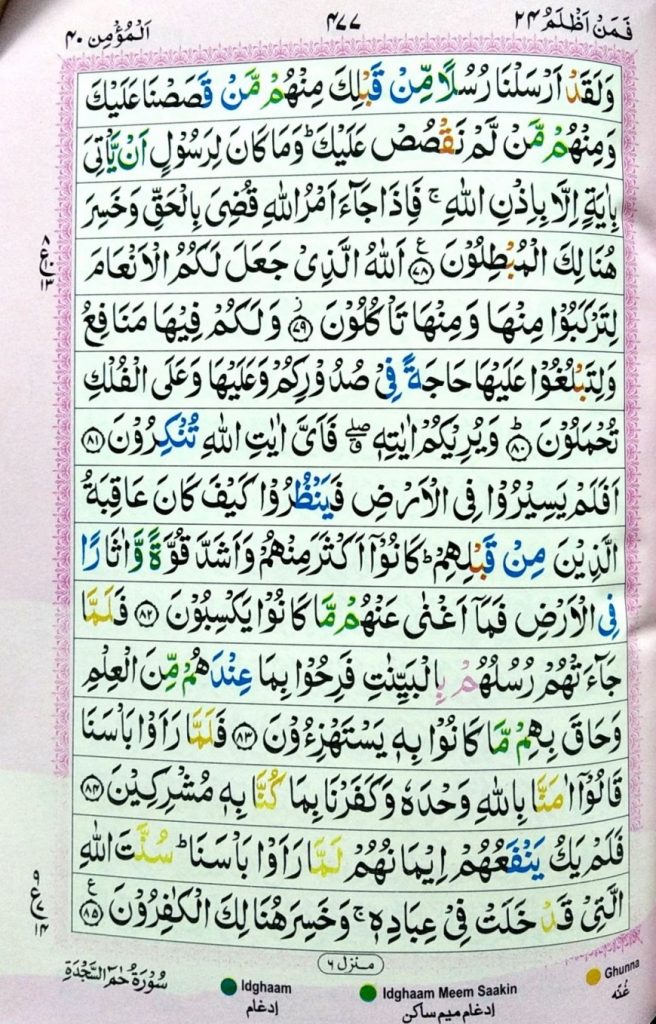 فَمَنْ اَظْلَمُ ٢٤
٤٧٧
اَلْمُؤْمِن ٤٠
وَلَقَدْ اَرْسَلْنَا رُسُلًا مِّنْ قَبْلِكَ مِنْهُمْ مَّنْ قَصَصْنَا عَلَيْكَ
وَمِنْهُمْ مَّنْ لَّمْ نَقْصُصْ عَلَيْكَ ؕ وَمَا كَانَ لِرَسُوْلٍ اَنْ يَّاْتِيَ
بِاٰيَةٍ اِلَّا بِاِذْنِ اللّٰهِ ۚ فَاِذَا جَآءَ اَمْرُ اللّٰهِ قُضِيَ بِالْحَقِّ وَخَسِرَ
هُنَالِكَ الْمُبْطِلُوْنَ ﴿٧٨﴾ اَللّٰهُ الَّذِيْ جَعَلَ لَكُمُ الْاَنْعَامَ
لِتَرْكَبُوْا مِنْهَا وَمِنْهَا تَاْكُلُوْنَ ﴿٧٩﴾ وَلَكُمْ فِيْهَا مَنَافِعُ
وَلِتَبْلُغُوْا عَلَيْهَا حَاجَةً فِيْ صُدُوْرِكُمْ وَعَلَيْهَا وَعَلَى الْفُلْكِ
تُحْمَلُوْنَ ﴿٨٠﴾ وَيُرِيْكُمْ اٰيٰتِهٖ ۖ فَاَيَّ اٰيٰتِ اللّٰهِ تُنْكِرُوْنَ ﴿٨١﴾
اَفَلَمْ يَسِيْرُوْا فِي الْاَرْضِ فَيَنْظُرُوْا كَيْفَ كَانَ عَاقِبَةُ
الَّذِيْنَ مِنْ قَبْلِهِمْ ؕ كَانُوْۤا اَكْثَرَ مِنْهُمْ وَاَشَدَّ قُوَّةً وَّاٰثَارًا
فِي الْاَرْضِ فَمَاۤ اَغْنٰى عَنْهُمْ مَّا كَانُوْا يَكْسِبُوْنَ ﴿٨٢﴾ فَلَمَّا
جَآءَتْهُمْ رُسُلُهُمْ بِالْبَيِّنٰتِ فَرِحُوْا بِمَا عِنْدَهُمْ مِّنَ الْعِلْمِ
وَحَاقَ بِهِمْ مَّا كَانُوْا بِهٖ يَسْتَهْزِءُوْنَ ﴿٨٣﴾ فَلَمَّا رَاَوْا بَاْسَنَا
قَالُوْۤا اٰمَنَّا بِاللّٰهِ وَحْدَهٗ وَكَفَرْنَا بِمَا كُنَّا بِهٖ مُشْرِكِيْنَ ﴿٨٤﴾
فَلَمْ يَكُ يَنْفَعُهُمْ اِيْمَانُهُمْ لَمَّا رَاَوْا بَاْسَنَا ؕ سُنَّتَ اللّٰهِ
الَّتِيْ قَدْ خَلَتْ فِيْ عِبَادِهٖ ۚ وَخَسِرَ هُنَالِكَ الْكٰفِرُوْنَ ﴿٨٥﴾
٨
ع
١٣
٩
ع
١٤
منزل ٦
سُوْرَةُ حٰمٓ السَّجْدَةِ
Idghaam
ادغام
Idghaam Meem Saakin
ادغام ميم ساكن
Ghunna
غُنّه